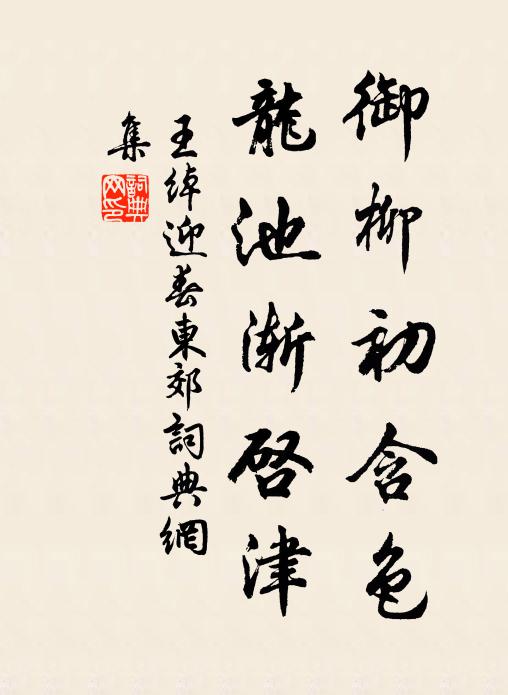 御柳初含色
龍池漸啓津
王綽迎春東郊詞典網
集
詞典
网印